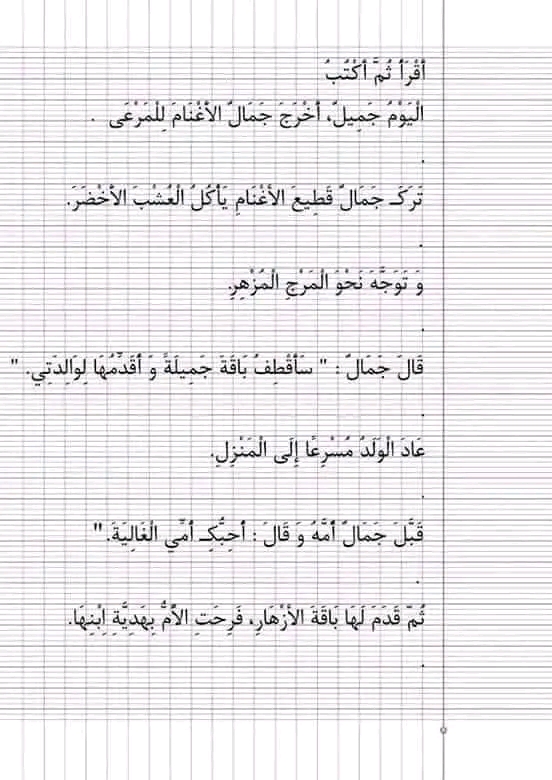 أَقْرَأُ ثُمَّ أَكْتُبُ
الْيَوْمُ جَمِيلٌ، أَخْرَجَ جَمَالٌ الأَغْنَامَ لِلْمَرْعَى .
.
تَرَكَـ جَمَالٌ قَطِيعَ الأَغْنَامِ يَأْكُلُ الْعُشْبَ الأَخْضَرَ.
.
وَ تَوَجَّهَ نَحْوَ الْمَرْجِ الْمُزْهِرِ.
.
قَالَ جَمَالٌ : " سَأَقْطِفُ بَاقَةً جَمِيلَةً وَ أُقَدِّمُهَا لِوَالِدَتِي. "
.
عَادَ الْوَلَدُ مُسْرِعًا إِلَى الْمَنْزِلِ.
.
قَبَّلَ جَمَالٌ أُمَّهُ وَ قَالَ : أُحِبُّكِـ أُمِّي الْغَالِيَةَ. "
.
ثُمّ قَدَمَ لَهَا بَاقَةَ الأَزْهَارِ، فَرِحَتِ الأُمُّ بِهَدِيَّةِ اِبْنِهَا.
.